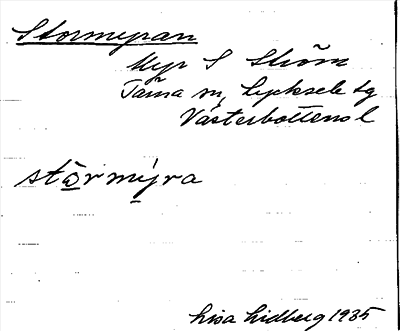 Stormyran
Myr S Ström
Tärna sn, Lycksele lg
Västerbottens l
stɷ̄rmýra
Lisa Lidberg 1935